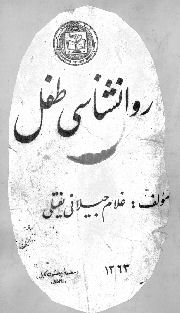 روانشناسی طفل
مؤلف: غلام جیلانی یفتلی
۱۳۶۳